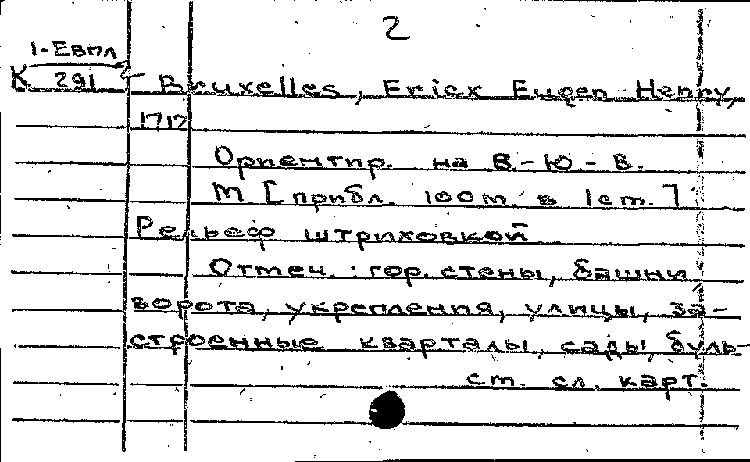 2
1-Евпл
К 291
Bruxelles, Ericx Eugen Henry,
1717
Ориентир. на В.-Ю-В.
М [прибл. 100m. в 1cm.]
Рельеф штриховкой
Отмеч.: гор. стены, башни,
ворота, укрепления, улицы, за-
строенные кварталы, сады, буль-
см. сл. карт.